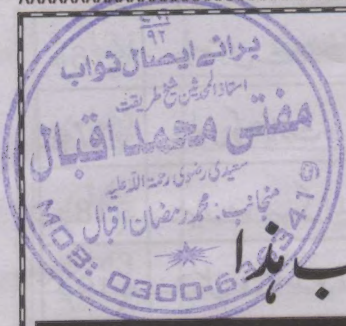 ۷۸۶
۹۲
برائے ایصال ثواب
استاذ المحدثین شیخ طریقت
مفتی محمد اقبال
سعیدی رضوی رحمۃ اللہ علیہ
منجانب: محمد رمضان اقبال
MOB: 0300-6
419
ب ہذا